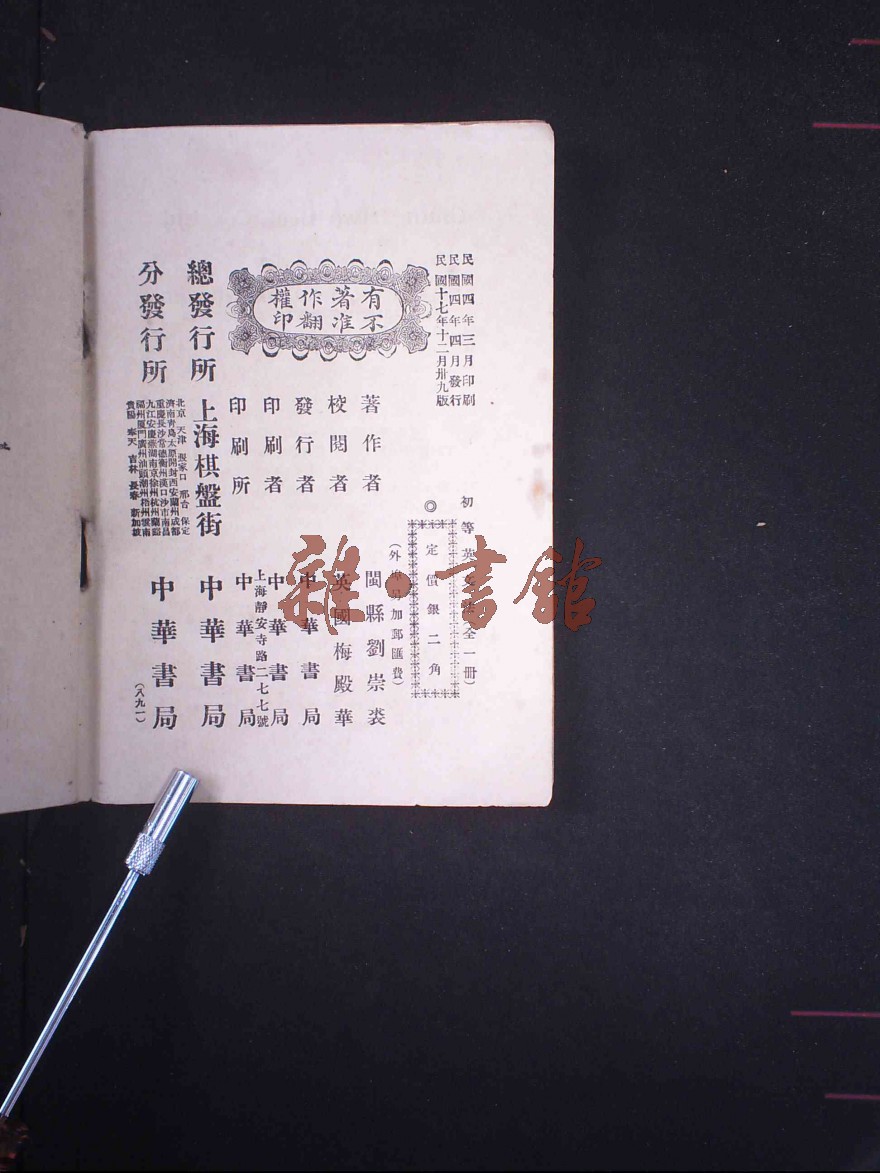 民國四年三月印刷
民國四年四月發行
民國十七年十二月卅九版
有著作權
不准翻印
初等英文法(全一冊)
◎
定價銀二角
(外埠另加郵匯費)
著作者 閩縣劉崇裘
校閱者 英國梅殿華
發行者 中華書局
印刷者 中華書局
上海靜安寺路二七七號
印刷所 中華書局
總發行所 上海棋盤街 中華書局
分發行所
北京 天津 張家口 邢台 保定
濟南青島太原開封西安蘭州成都
重慶長沙常德衡州漢口沙市南昌
九江安慶蕪湖南京徐州杭州蘭谿
福州廈門廣州汕頭潮州梧州雲南
貴陽 奉天 吉林 長春 新加坡
中華書局
(八九一)
雜·書館